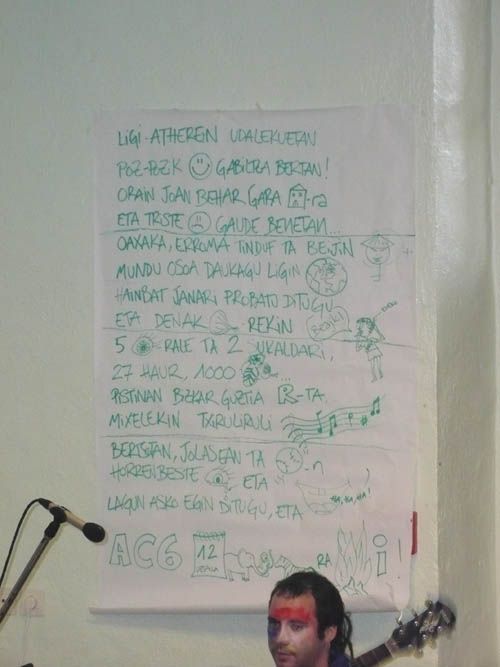 LIGI-ATHEREIN UDALEKUETAN
POZ-POZIK GABILTZA BERTAN!
ORAIN JOAN BEHAR GARA -ra
ETA TRISTE GAUDE BENETAN...
OAXAKA, ERROMA TINDUF TA BEIJIN
MUNDU OSOA DAUKAGU LIGIN
HAINBAT JANARI PROBATU DITUGU
ETA DENAK REKIN
5 RALE TA 2 SUKALDARI,
27 HAUR, 1000 ...
PISTINAN BIZKAR GUZTIA R-TA.
MIXELEKIN TXIRULIRULI
BERTSOTAN, JOLASEAN TA -n
HORRENBESTE ETA HA, HA, HA!
LAGUN ASKO EGIN DITUGU, ETA
AC6 12 RA i!